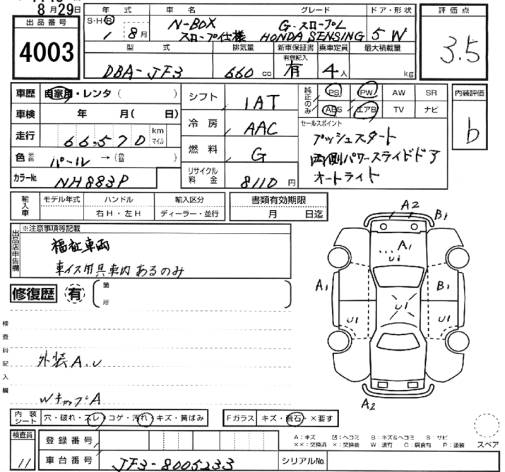 8月29日
出品番号
4003
年式 車名 グレード ドア・形状
S・H・R 1 8月
N-BOX スロープ仕様
G・スロープL HONDA SENSING
5 W
型式 排気量 新車保証書 乗車定員 最大積載量
DBA-JF3 660 cc
有保記入 有 4人 kg
評価点
3.5
車歴 自家用・レンタ( )
車検 年 月(日)
走行 66,570 km マイル
色 パール→( )
カラーNo. NH883P
シフト 1AT
冷房 AAC
燃料 G
リサイクル料金 8110円
純正のみ
PS PW AW SR
ABS エアB TV ナビ
セールスポイント
プッシュスタート
両側パワースライドドア
オートライト
内装評価
b
輸入車
モデル年式 ハンドル 輸入区分
右H・左H ディーラー・並行
書類有効期限
月 日迄
出品店申告欄
※注意事項等記載
福祉車両
車イス用具車内あるのみ
修復歴 有 箇所
検査員記入欄
外装A、U
WキップA
A2 B1
A1
U1
A1 B1
U1 U1
A2
内装シート 穴・破れ・スレ コゲ・汚れ キズ・黄ばみ
Fガラス キズ・飛石・×要す
スペア
検査員
11
登録番号
車台番号 JF3-8005233
シリアルNo.